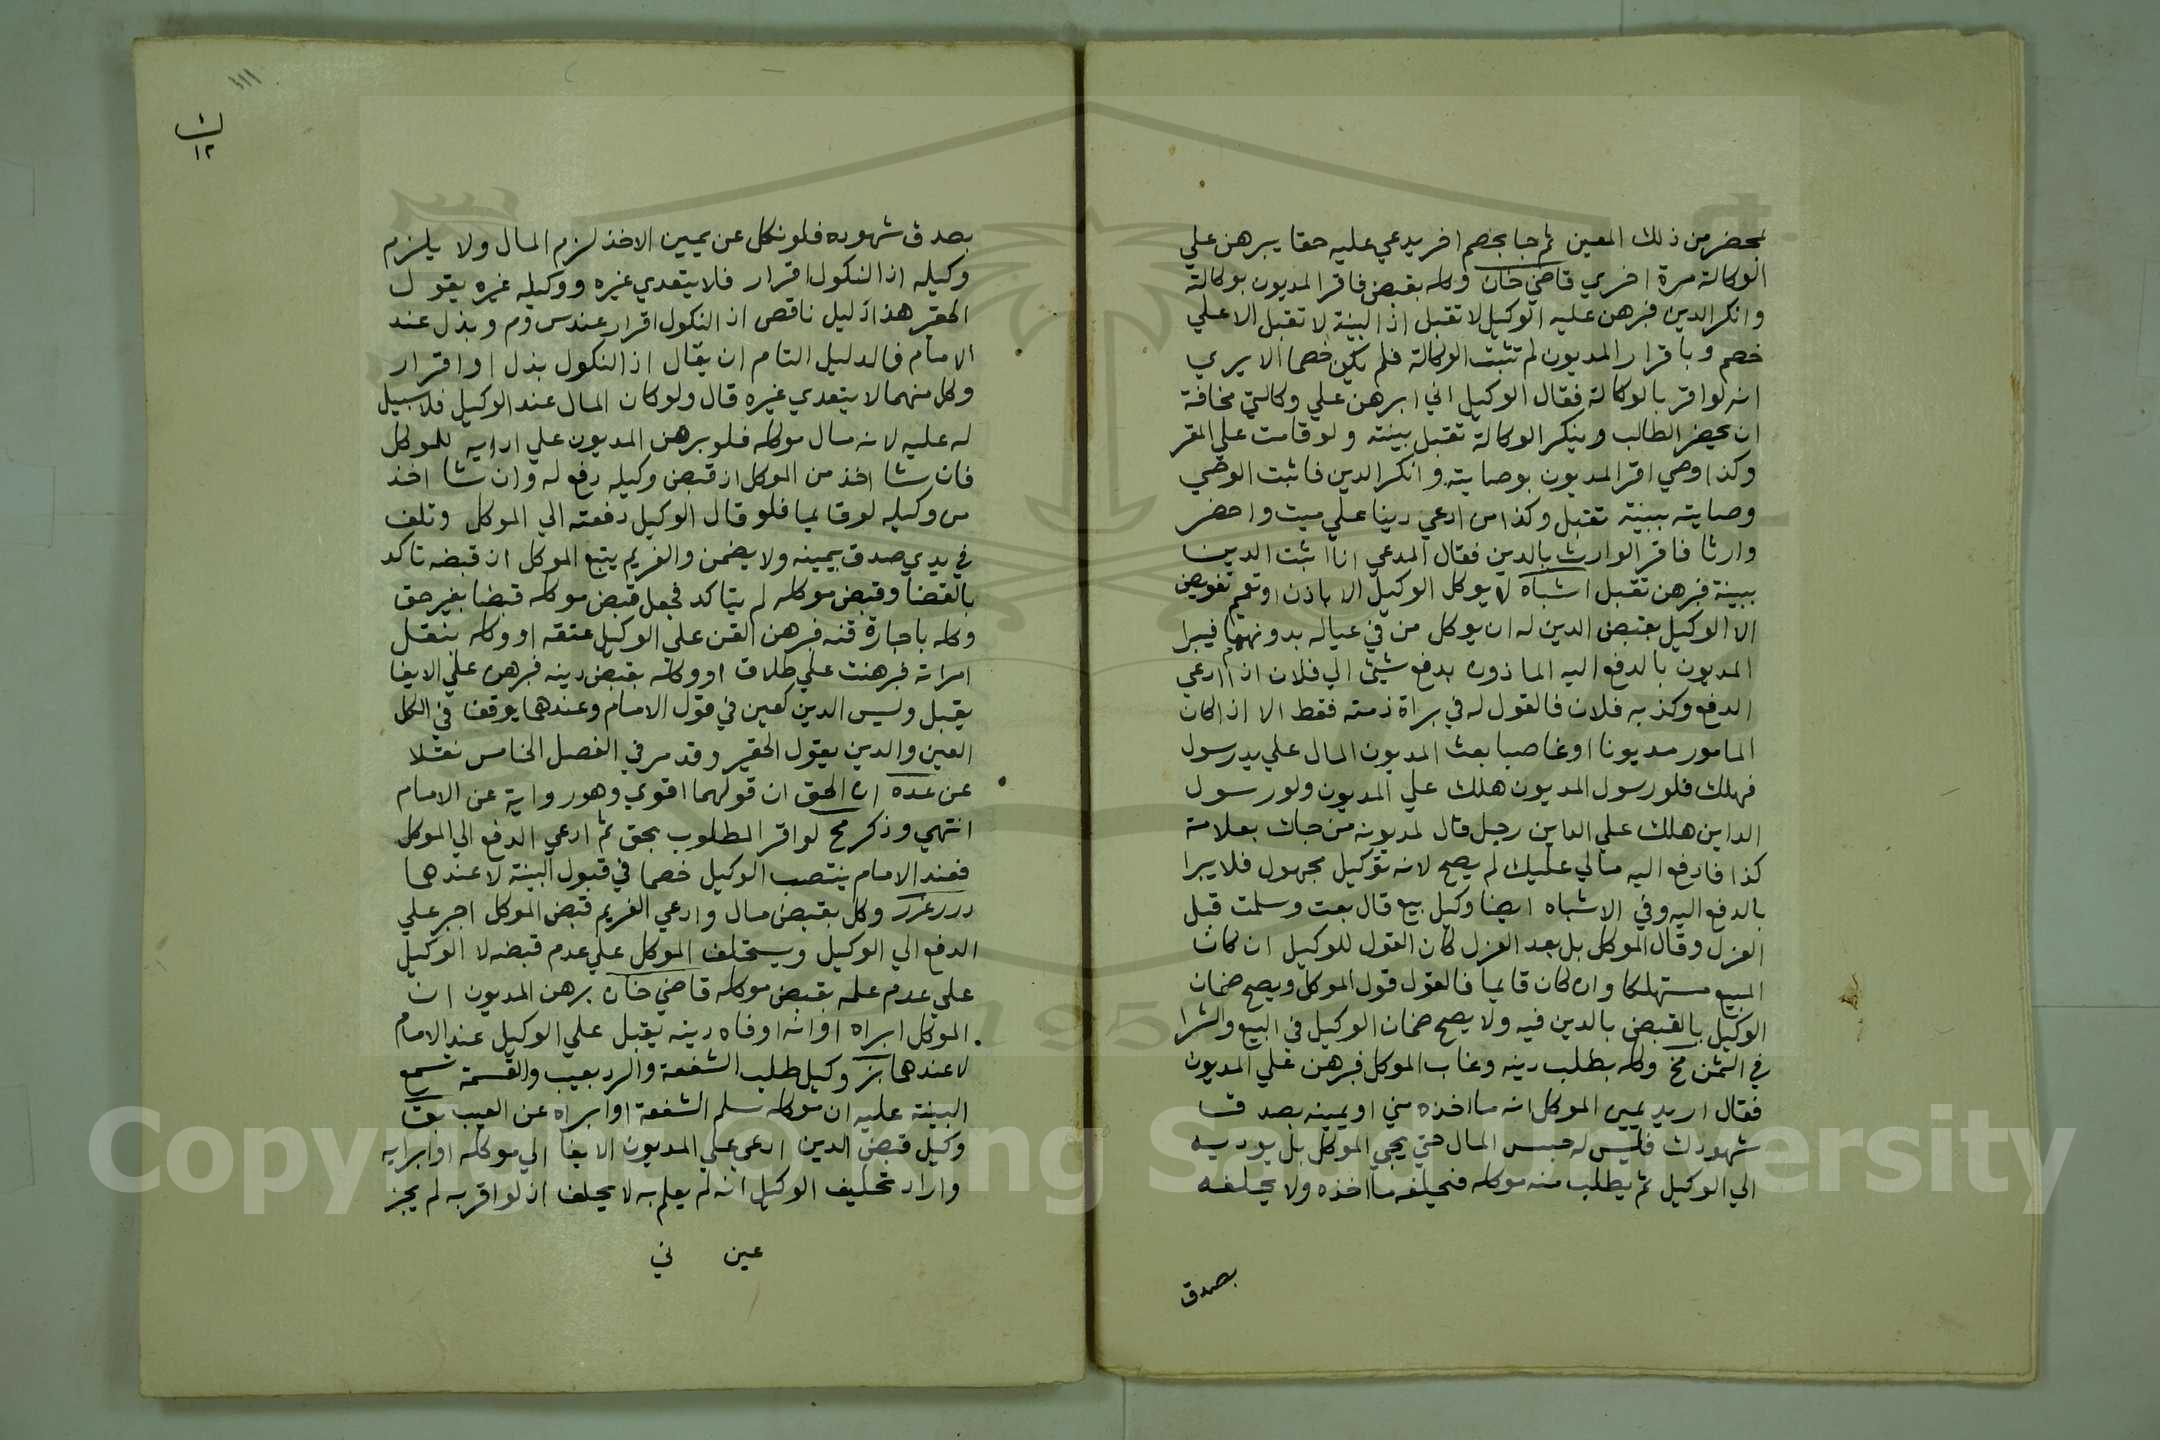 لمحضر من ذلك المعين ثم جا بخصم اخر يدعي عليه حقا يبرهن علي
الوكالة مرة اخري قاضي خان وكله بقبض فاقر المديون بوكالة
وانكر الدين فبرهن عليه الوكيل لا تقبل اذ البينة لا تقبل الا علي
خصم وباقرار المديون لم تثبت الوكالة فلم يكن خصما الا يري
انه لو اقر بالوكالة فقال الوكيل اني ابرهن علي وكالتي مخافة
ان يحضر الطالب وينكر الوكالة تقبل بينته ولو قامت علي المقر
وكذا وصي اقر المديون بوصايته وانكر الدين فاثبت الوصي
وصايته ببينة تقبل وكذا من ادعي دينا علي ميت واحضر
وارثا فاقر الوارث بالدين فقال المدعي انا اثبت الدين
ببينة فبرهن تقبل اشباه لا يوكل الوكيل الا باذن او تعميم تفويض
الا الوكيل بقبض الدين له ان يوكل من في عياله بدونهما فيبرا
المديون بالدفع اليه الماذون بدفع شيئ الي فلان اذا ادعي
الدفع وكذبه فلان فالقول له في براة ذمته فقط الا اذا كان
المامور مديونا او غاصبا بعث المديون المال علي يد رسول
فهلك فلو رسول المديون هلك علي المديون ولو رسول
الداين هلك علي الداين رجل قال لمديونه من جاك بعلامة
كذا فادفع اليه مالي عليك لم يصح لانه توكيل مجهول فلا يبرا
بالدفع اليه وفي الاشباه ايضا وكيل بيع قال بعت وسلمت قبل
العزل وقال الموكل بل بعد العزل كان القول للوكيل ان كان
المبيع مستهلكا وان كان قايما فالقول قول الموكل ويصح ضمان
الوكيل بالقبض بالدين فيه ولا يصح ضمان الوكيل في البيع والشرا
في الثمن مخ وكله بطلب دينه وغاب الموكل فبرهن علي المديون
فقال اريد يمين الموكل انه ما اخذه مني او يمينه بصدق
شهودك فليس له حبس المال حتي يجي الموكل بل يوديه
الي الوكيل ثم يطلب منه موكله فنحلفه ما اخذه ولا يحلفه
بصدق
١١١
١٢
بصدق شهوده فلو نكل عن يمين الاخذ لزم المال ولا يلزم
وكيله اذ النكول اقرار فلا يتعدي غيره ووكيله غيره يقول
الحقير هذا دليل ناقص اذ النكول اقرار عند س وم وبذل عند
الامام فالدليل التام ان يقال اذ النكول بذل او اقرار
وكل منهما لا يتعدي غيره قال ولو كان المال عند الوكيل فلا سبيل
له عليه لانه مال موكله فلو برهن المديون علي ادايه للموكل
فان شا اخذ من الموكل اذ قبض وكيله دفع له وان شا اخذ
من وكيله لو قايما فلو قال الوكيل دفعته الي الموكل وتلف
في يدي صدق بيمينه ولا يضمن والغريم يتبع الموكل ان قبضه تاكد
بالقضا وقبض موكله لم يتاكد فجعل قبض موكله قبضا بغير حق
وكله باجارة قنه فبرهن القن علي الوكيل عتقه او وكله بنقل
امراته فبرهنت علي طلاق او وكله بقبض دينه فبرهن علي الايفا
يقبل وليس الدين كعين في قول الامام وعندهما يوقف في الكل
العين والدين يقول الحقير وقد مر في الفصل الخامس نقلا
عن عده ان الحق ان قولهما اقوي وهو رواية عن الامام
انتهي وذكر مح لو اقر المطلوب بحق ثم ادعي الدفع الي الموكل
فعند الامام ينتصب الوكيل خصما في قبول البينة لا عندهما
درر غرر وكل بقبض مال وادعي الغريم قبض الموكل اجبر علي
الدفع الي الوكيل ويستحلف الموكل علي عدم قبضه لا الوكيل
علي عدم علمه بقبض موكله قاضي خان برهن المديون ان
الموكل ابراه او انه اوفاه دينه يقبل علي الوكيل عند الامام
لا عندهما بز وكيل طلب الشفعة والرد بعيب والقسمة تسمع
البينة عليه ان موكله سلم الشفعة او ابراه عن العيب بق
وكيل قبض الدين ادعي علي المديون الايفا الي موكله او ابرايه
واراد تحليف الوكيل انه لم يعلم به لا يحلف اذ لو اقر به لم يجز
عين في
Copyright © King Saud University
1957